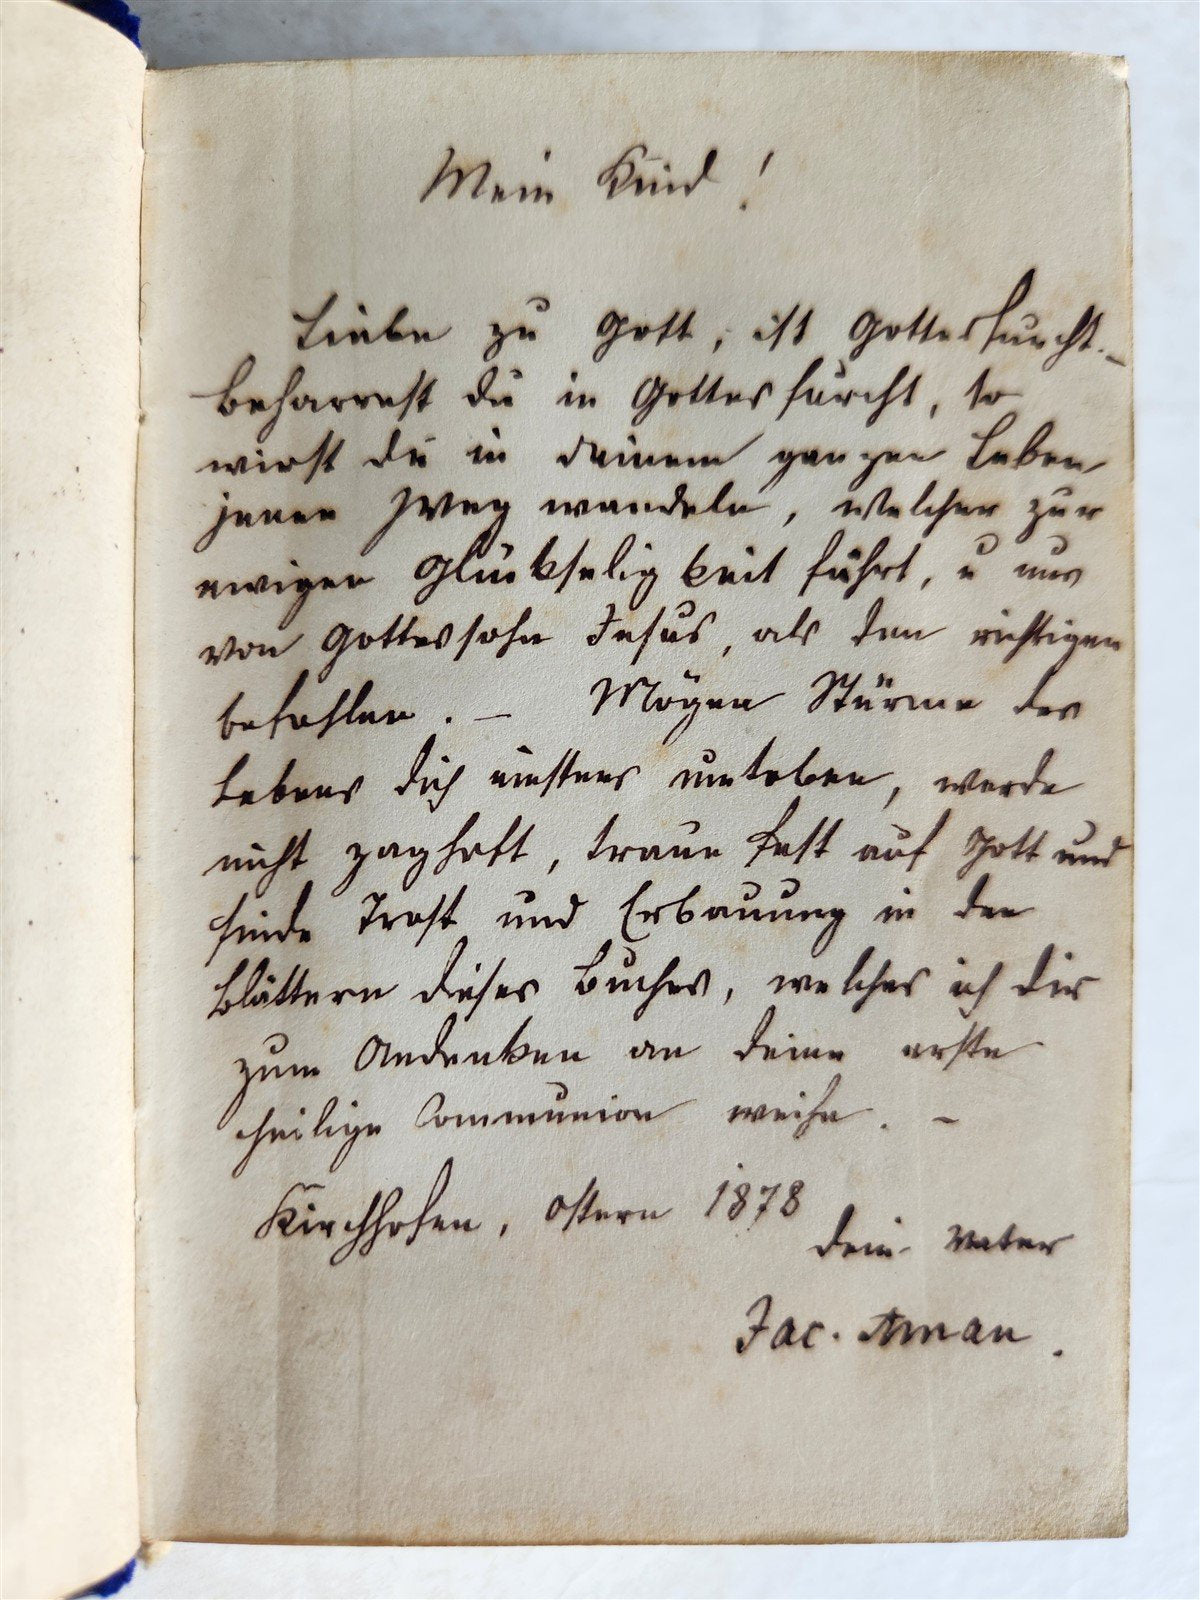 Mein Kind!
Liebe zu Gott, ist Gottesfurcht. –
Beharrest du in Gottesfurcht, so
wirst du in deinem ganzen Leben
jenen Weg wandeln, welcher zur
ewigen Glückseligkeit führt, u uns
von Gottessohn Jesus, als den richtigen
befohlen. – Mögen Stürme des
Lebens dich einstens umtoben, werde
nicht zaghaft, traue fest auf Gott und
finde Trost und Erbauung in den
Blättern dieses Buches, welches ich dir
zum Andenken an deine erste
heilige Communion weihe. –
Kirchhofen, Ostern 1878
Dein Vater
Jac. Aman.